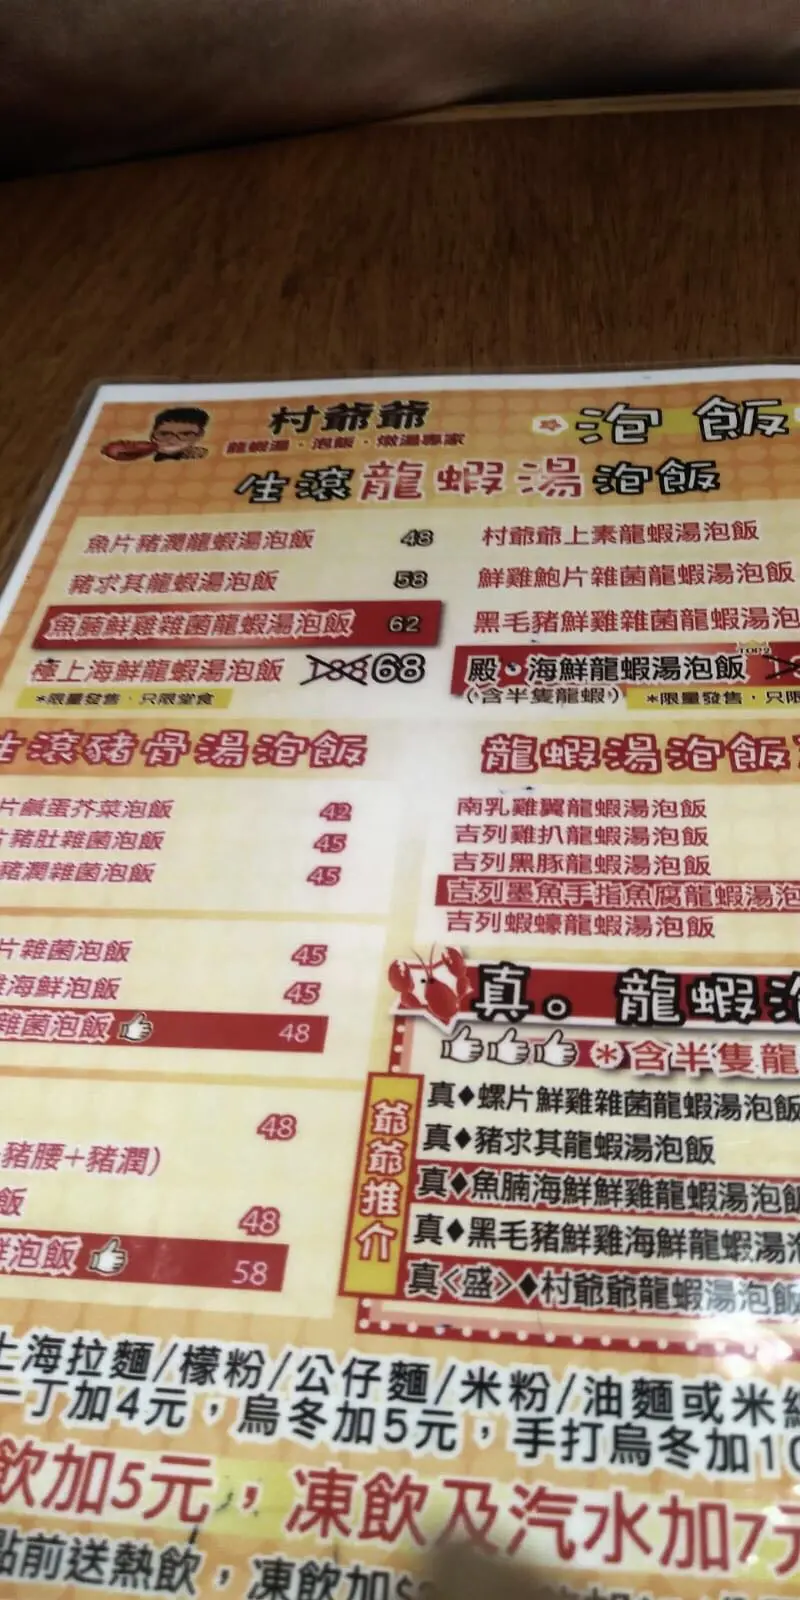 村爺爺
龍蝦湯·泡飯·燉湯專家
泡飯
生滾龍蝦湯泡飯
魚片豬潤龍蝦湯泡飯 48
豬求其龍蝦湯泡飯 58
魚腩鮮雞雜菌龍蝦湯泡飯 62
極上海鮮龍蝦湯泡飯 68
*限量發售·只限堂食
村爺爺上素龍蝦湯泡飯
鮮雞鮑片雜菌龍蝦湯泡飯
黑毛豬鮮雞雜菌龍蝦湯泡
TOP2
殿·海鮮龍蝦湯泡飯
(含半隻龍蝦) *限量發售·只限
生滾豬骨湯泡飯
片鹹蛋芥菜泡飯 42
豬肚雜菌泡飯 45
豬潤雜菌泡飯 45
片雜菌泡飯 45
海鮮泡飯 45
雜菌泡飯 48
48
豬腰+豬潤)
飯 48
泡飯 58
龍蝦湯泡飯
南乳雞翼龍蝦湯泡飯
吉列雞扒龍蝦湯泡飯
吉列黑豚龍蝦湯泡飯
吉列墨魚手指魚腐龍蝦湯泡
吉列蝦蠔龍蝦湯泡飯
真。龍蝦泡
*含半隻龍
爺爺推介
真♦螺片鮮雞雜菌龍蝦湯泡飯
真♦豬求其龍蝦湯泡飯
真♦魚腩海鮮鮮雞龍蝦湯泡飯
真♦黑毛豬鮮雞海鮮龍蝦湯泡
真<盛>♦村爺爺龍蝦湯泡飯
上海拉麵/檬粉/公仔麵/米粉/油麵或米線
一丁加4元，烏冬加5元，手打烏冬加10
飲加5元，凍飲及汽水加7元
點前送熱飲，凍飲加$